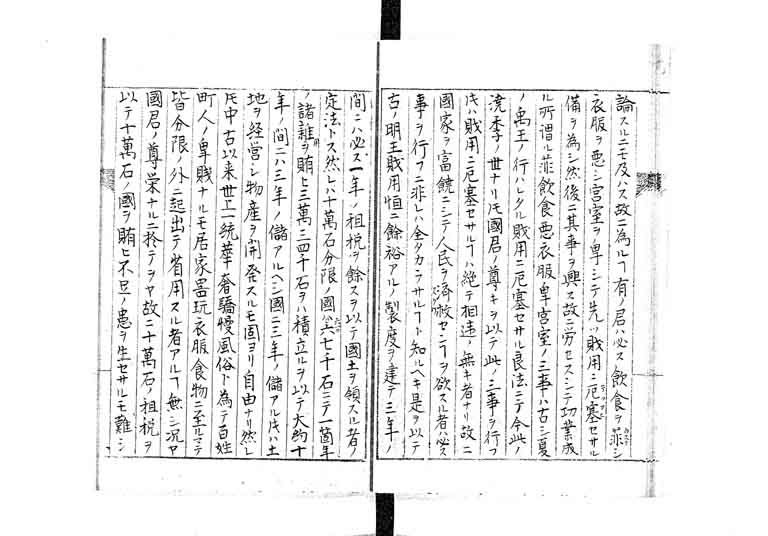 論スルニモ及ハス故ニ為ルヿ有ノ君ハ必ス飲食ヲ菲シ
衣服ヲ悪シ宮室ヲ卑シテ先ツ財用ニ厄塞セサル
備ヲ為シ然後ニ其事ヲ興ス故ニ労セスシテ功業成
ル所謂ル菲飲食悪衣服卑宮室ノ三事ハ古シ夏
ノ禹王ノ行ハレタル財用ニ厄塞セサル良法ニテ今此ノ
澆季ノ世ナリモ國君ノ尊キヲ以テ此ノ三事ヲ行フ
ﾄｷハ財用ニ厄塞セサルヿハ絶テ相違ノ無キ者ナリ故ニ
國家ヲ富饒ニシテ人民ヲ済救センヿヲ欲スル者ハ必ス
事ヲ行フニ非レハ全タカラサルヿト知ルヘキ是ヲ以テ
古ノ明王財用恒ニ餘裕アルノ製度ヲ建テ三年ノ
間ニハ必ス一年ノ租税ヲ餘スヲ以テ國土ヲ領スル者ノ
定法トス然レハ十萬石分限ノ國ハ六七千石ニテ一箇年
ノ諸雑ヲ賄ヒ三萬三四千石ヲハ積立ルヲ以テ大約十
年ノ間ニハ三年ノ儲アルヘシ國ニ三年ノ儲アルﾄｷハ土
地ヲ経営シ物産ヲ開発スルモ固ヨリ自由ナリ然レ
ﾄﾓ中古以来世上一統華奢驕慢風俗ト為テ百姓
町人ノ卑賤ナルモ居家器玩衣服食物ニ至ルマテ
皆分限ノ外ニ起出テ省用スル者アルヿ無シ況ヤ
國君ノ尊栄ナルニ於テヲヤ故ニ十萬石ノ租税ヲ
以テ十萬石ノ國ヲ賄ヒ不足ノ患ヲ生セサルモ難シ